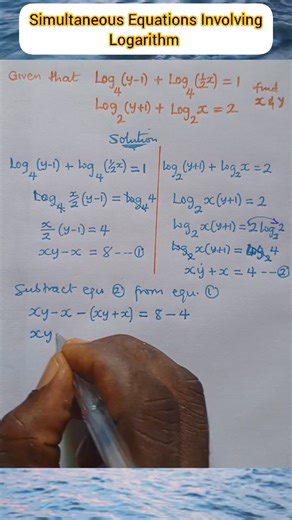 Simultaneous Equations Involving
Logarithm
Given that Log₄(y-1) + Log₄(½x) = 1 find
Log₂(y+1) + Log₂x = 2 x & y
Solution
Log₄(y-1) + log₄(½x) = 1
Log₄ x/2 (y-1) = log₄4
x/2 (y-1) = 4
xy - x = 8 --- ①
Log₂(y+1) + log₂x = 2
Log₂x(y+1) = 2
Log₂x(y+1) = 2log₂2
Log₂x(y+1) = log₂4
xy + x = 4 --- ②
Subtract equ ② from equ. ①
xy - x - (xy + x) = 8 - 4
xy